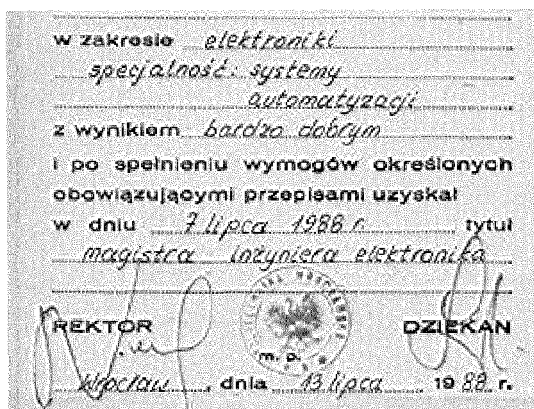 w zakresie elektroniki
specjalność: systemy
automatyzacji
z wynikiem bardzo dobrym
i po spełnieniu wymogów określonych
obowiązującymi przepisami uzyskał
w dniu 7 lipca 1988 r. tytuł
magistra inżyniera elektronika
REKTOR DZIEKAN
m. p.
Wrocław, dnia 13 lipca 1988 r.